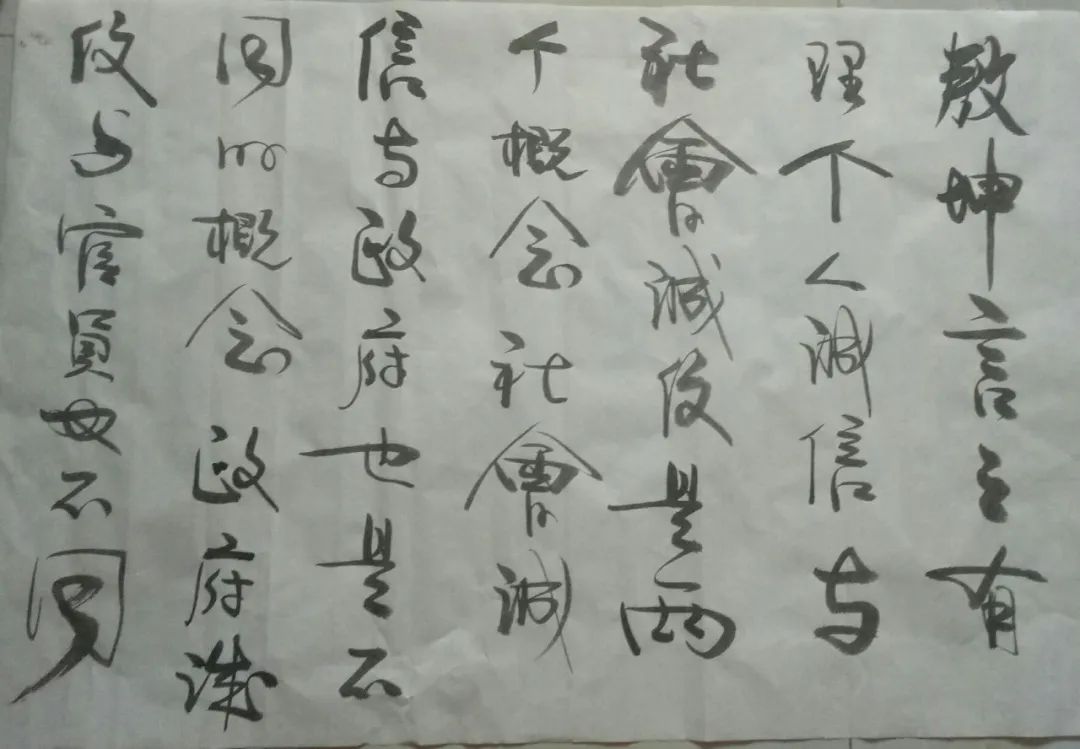 敖坤言之有
理个人诚信与
社會诚信是两
个概念社會诚
信与政府也是不
同的概念政府诚
信与官員也不同